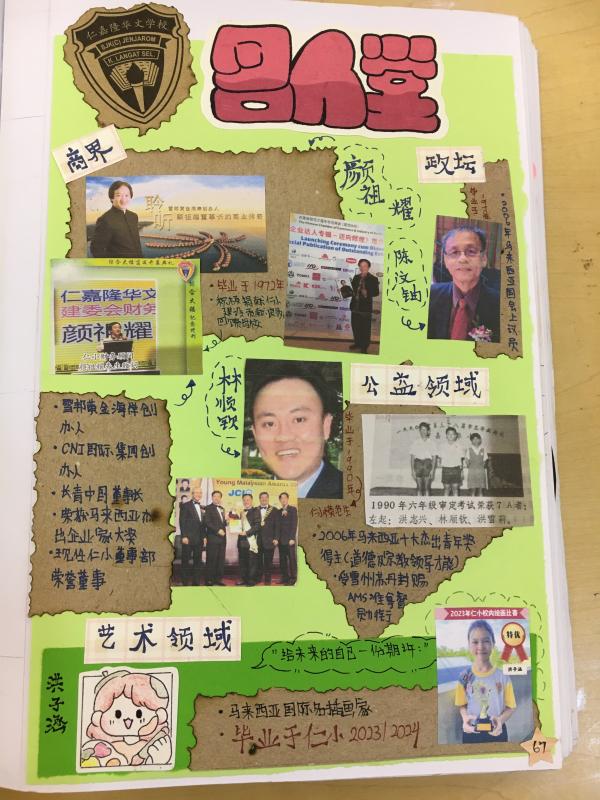 仁嘉隆华文学校
SJK(C) JENJAROM
K. LANGAT SEL.
名人堂
商界
聆听
颜祖耀
毕业于1972年
仁嘉隆华文
建委会财务
颜祖耀
Launching Ceremony
政坛
陈汶轴
2006年马来西亚国会上议员
林顺钦
毕业于1990年
雪邦黄金海岸创
办人
CNI国际集团创
办人
长青中国董事长
荣获马来西亚杰
出企业家大奖
现任仁小董事部
荣誉董事
Young Malaysian Awards
JCI
公益领域
1990年六年级审定考试荣获7A者:
左起:洪志兴、林顺钦、洪雪莉。
2006年马来西亚十大杰出青年奖
得主(道德及宗教领导才能)
受雪州苏丹封赐
AMS准拿督
勋衔
艺术领域
洪子涵
"给未来的自己一份期许:"
马来西亚国际名插画家
毕业于仁小2023/2024
2023年仁小校内绘画比赛
特优
洪子涵
67